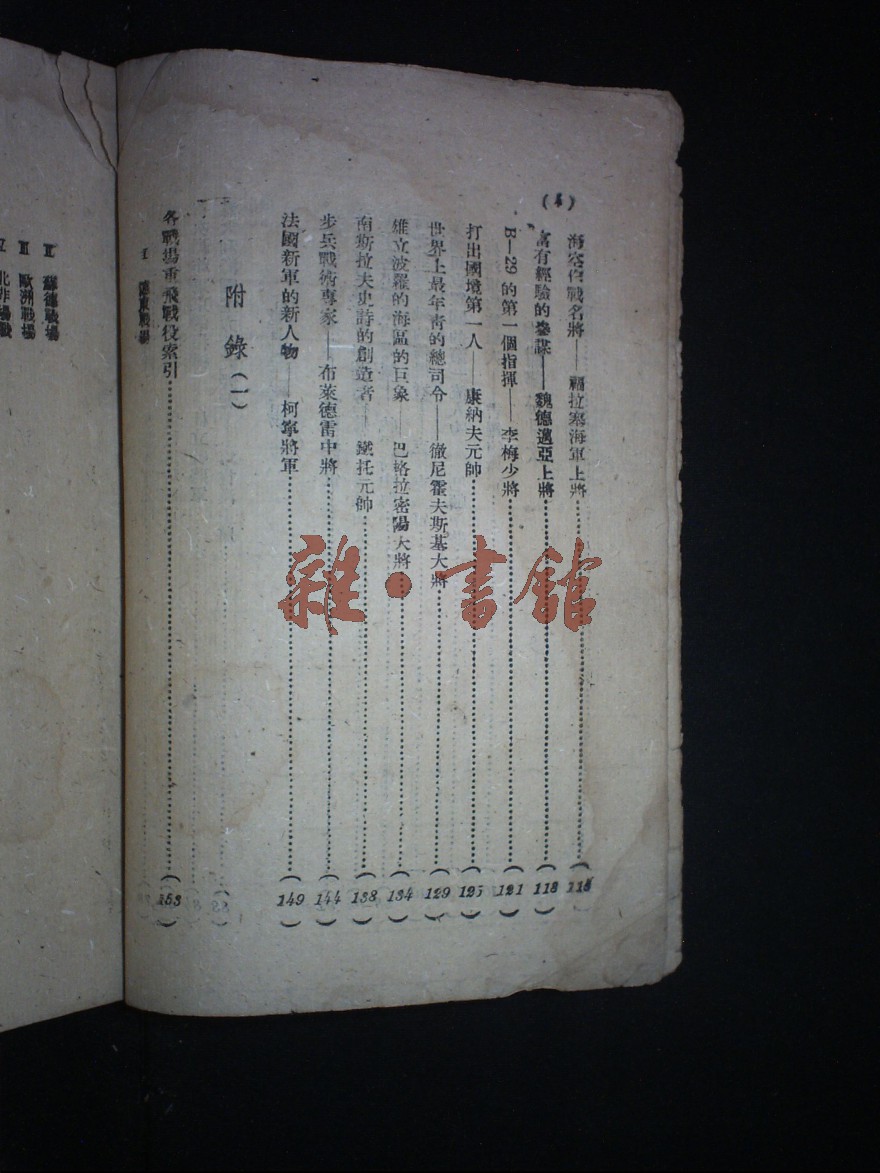 (4)
海空作戰名將——福拉塞海軍上將……(115)
富有經驗的參謀——魏德邁亞上將……(118)
B—29的第一個指揮——李梅少將……(121)
打出國境第一人——康納夫元帥……(125)
世界上最年靑的總司令——徹尼霍夫斯基大將……(129)
維立波羅的海區的巨象——巴格拉密陽大將……(134)
南斯拉夫史詩的創造者——鐵托元帥……(138)
步兵戰術專家——布萊德雷中將……(144)
法國新軍的新人物——柯寧將軍……(149)
附錄(一)
各戰場重飛戰役索引……(153)
I 戰場
II 蘇德戰場
III 歐洲戰場
北非戰
雜·書館